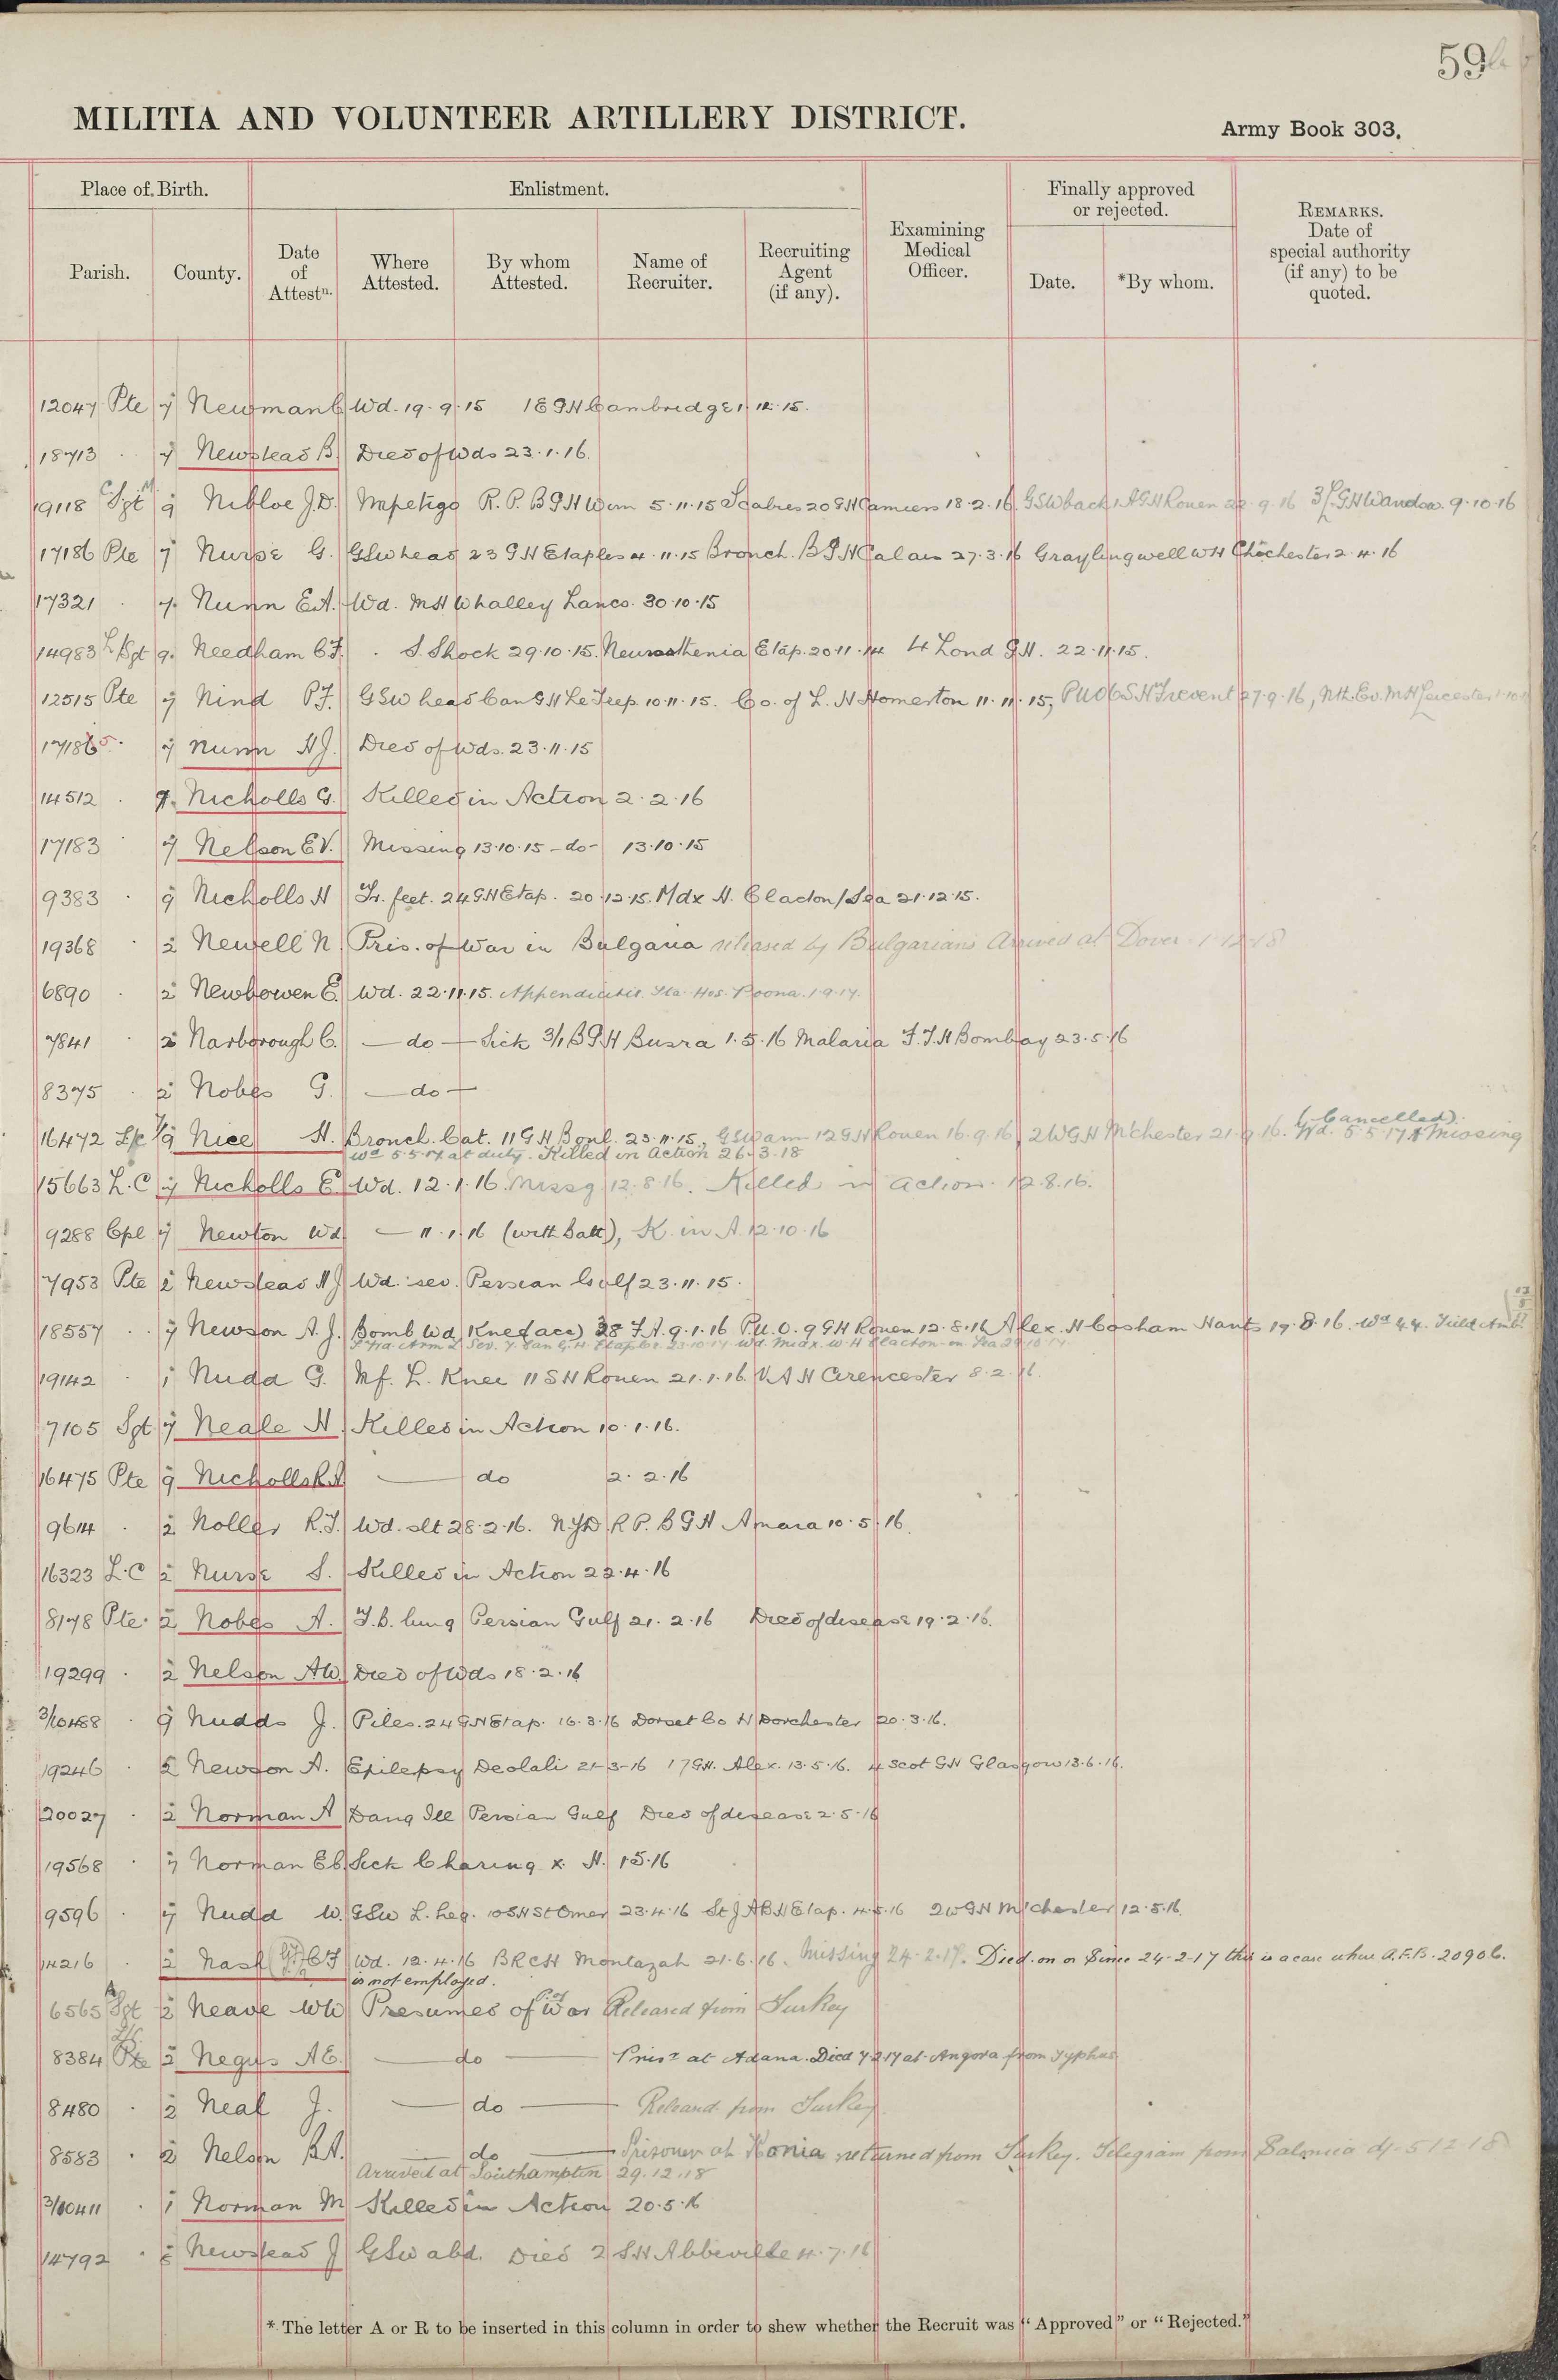 59
MILITIA AND VOLUNTEER ARTILLERY DISTRICT.
Army Book 303.
Place of Birth. Enlistment. Examining Medical Officer. Finally approved or rejected. REMARKS. Date of special authority (if any) to be quoted.
Parish. County. Date of Attestn. Where Attested. By whom Attested. Name of Recruiter. Recruiting Agent (if any). Date. *By whom.
12047 Pte 7 Newman C Wd. 19.9.15 1 E G H Cambridge 1.12.15.
18713 . 7 Newstead B. Died of Wds 23.1.16.
19118 Sgt 9 Nibloe J.D. Impetigo R.P. B G H Wim 5.11.15 Scabies 20 G H Camiers 18.2.16. GSW back 1 A G H Rouen 22.9.16 3/L G H Wandsw. 9.10.16
17186 Pte 7 Nurse G. GSW head 23 G H Etaples 4.11.15 Bronch. B G H Calais 27.3.16 Graylingwell W H Chichester 2.4.16
17321 . 7. Nunn E.A. Wd. M H Whalley Lancs. 30.10.15
14983 L/Sgt 9. Needham C F. . S. Shock 29.10.15. Neurasthenia Etap. 20.11.14 4 Lond G H. 22.11.15.
12515 Pte 7 Nind P F. GSW head Can G H Le Trep. 10.11.15. Co. of L. H Homerton 11.11.15, PUO 6 S H Frevent 27.9.16, Nth. Ev. M H Leicester
17186 5. . 7 Nunn H J. Died of Wds. 23.11.15
14512 . 7. Nicholls G. Killed in Action 2.2.16
17183 . 7 Nelson E V. Missing 13.10.15 - do - 13.10.15
9383 . 9 Nicholls H Tr. feet. 24 G H Etap. 20.12.15. Mdx H. Clacton/Sea 21.12.15.
19368 . 2 Newell N. Pris. of War in Bulgaria released by Bulgarians Arrived at Dover 1.12.18
6890 . 2 Newbowen E. Wd. 22.11.15. Appendicitis Sta. Hos. Poona. 1.9.17.
7841 . 2 Narborough C. — do — Sick 3/1 B G H Busra 1.5.16 Malaria F.T.H Bombay 23.5.16
8375 . 2 Nobes G. — do —
(Cancelled).
16472 L/c 7/9 Nice H. Bronch. Cat. 11 G H Boul. 23.11.15, GSW arm 12 G H Rouen 16.9.16, 2 W G H M'chester 21.9.16. Wd. 5.5.17 & Missing
Wd 5.5.17 at duty. Killed in action 26.3.18
15663 L.C 7 Nicholls E. Wd. 12.1.16. Missg 12.8.16. Killed in action. 12.8.16.
9288 Cpl 7 Newton Wd. — 11.1.16 (with Batt), K. in A. 12.10.16
7953 Pte 2 Newstead H J Wd. sev. Persian Gulf 23.11.15.
18557 . 7 Newson A.J. Bomb Wd Knee (acc) 38 F A. 9.1.16 P.U.O. 9 G H Rouen 12.8.16 Alex. H Cosham Hants 19.8.16. Wd 4.4. Field Amb.
19142 . 1 Nudd G. Inf. L. Knee 11 S H Rouen 21.1.16. V A H Cirencester 8.2.16.
7105 Sgt 7 Neale H. Killed in Action 10.1.16.
16475 Pte 9 Nicholls R.A — do 2.2.16
9614 . 2 Noller R.J. Wd. slt 28.2.16. N.Y.D R P. B G H Amara 10.5.16.
16323 L.C 2 Nurse S. Killed in Action 22.4.16
8178 Pte. 2 Nobes A. T.B. lung Persian Gulf 21.2.16 Died of disease 19.2.16.
19299 . 2 Nelson A W. Died of Wds 18.2.16
3/10488 . 9 Nudds J. Piles. 24 G H Etap. 16.3.16 Dorset Co H Dorchester 20.3.16.
19246 . 2 Newson A. Epilepsy Deolali 21-3-16 17 G H. Alex. 13.5.16. 4 Scot G H Glasgow 13.6.16.
20027 . 2 Norman A Dang Ill Persian Gulf Died of disease 2.5.16
19568 . 7 Norman E C Sick Charing x. H. 1.5.16
9596 . 7 Nudd W. GSW L. Leg. 10 S H St Omer 23.4.16 St J A B H Etap. 4.5.16 2 W G H M'chester 12.5.16.
14216 . 2 Nash C F Wd. 12.4.16 B R C H Montazah 21.6.16. Missing 24.2.17. Died on or Since 24-2-17 this is a case where A.F.B. 2090 C.
is not employed.
6565 Sgt 2 Neave W W Presumed P. of War Released from Turkey
8384 Pte 2 Negus A E. — do — Prisr at Adana. Died 7.2.17 at Angora from Typhus
8480 . 2 Neal J. — do — Released from Turkey
8583 . 2 Nelson R A. — do — Prisoner at Konia returned from Turkey. Telegram from Salonica d/- 5 12 18
Arrived at Southampton 29.12.18
3/10411 . 1 Norman M Killed in Action 20.5.16
14792 . 8 Newstead J GSW abd. Died 2 S H Abbeville 4.7.16
* The letter A or R to be inserted in this column in order to shew whether the Recruit was "Approved" or "Rejected."